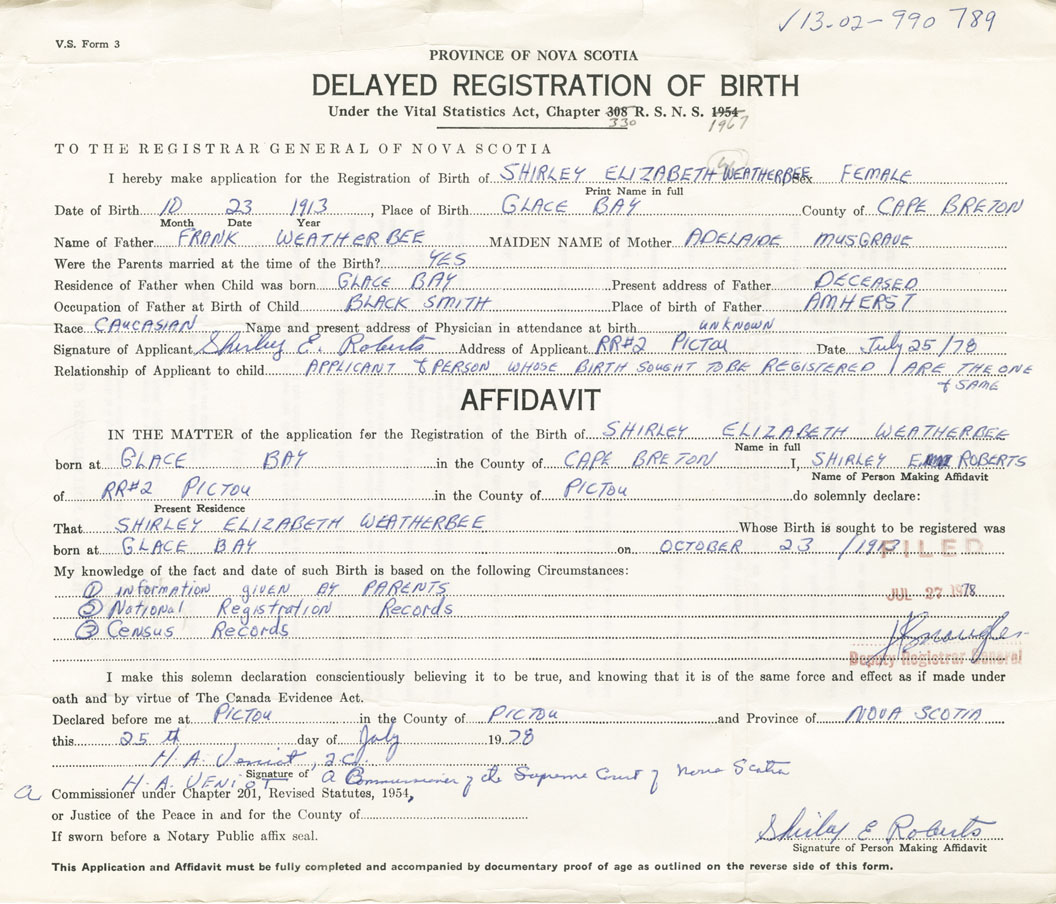 √13-02-990 789
V.S. Form 3
PROVINCE OF NOVA SCOTIA
DELAYED REGISTRATION OF BIRTH
Under the Vital Statistics Act, Chapter 308 R. S. N. S. 1954
330 1967
TO THE REGISTRAR GENERAL OF NOVA SCOTIA
I hereby make application for the Registration of Birth of SHIRLEY ELIZABETH WEATHERBEE Sex FEMALE
Print Name in full
Date of Birth 10 23 1913, Place of Birth GLACE BAY County of CAPE BRETON
Month Date Year
Name of Father FRANK WEATHERBEE MAIDEN NAME of Mother ADELAIDE MUSGRAVE
Were the Parents married at the time of the Birth? YES
Residence of Father when Child was born GLACE BAY Present address of Father DECEASED
Occupation of Father at Birth of Child BLACK SMITH Place of birth of Father AMHERST
Race CAUCASIAN Name and present address of Physician in attendance at birth UNKNOWN
Signature of Applicant Shirley E. Roberts Address of Applicant RR#2 PICTOU Date July 25/78
Relationship of Applicant to child APPLICANT & PERSON WHOSE BIRTH SOUGHT TO BE REGISTERED ARE THE ONE
& SAME
AFFIDAVIT
IN THE MATTER of the application for the Registration of the Birth of SHIRLEY ELIZABETH WEATHERBEE
Name in full
born at GLACE BAY in the County of CAPE BRETON I, SHIRLEY E. ROBERTS
Name of Person Making Affidavit
of RR#2 PICTOU in the County of PICTOU do solemnly declare:
Present Residence
That SHIRLEY ELIZABETH WEATHERBEE Whose Birth is sought to be registered was
born at GLACE BAY on OCTOBER 23 /1913
FILED
My knowledge of the fact and date of such Birth is based on the following Circumstances:
① information given by PARENTS
JUL 27 1978
② National Registration Records
③ Census Records
Deputy Registrar General
I make this solemn declaration conscientiously believing it to be true, and knowing that it is of the same force and effect as if made under
oath and by virtue of The Canada Evidence Act.
Declared before me at PICTOU in the County of PICTOU and Province of NOVA SCOTIA
this 25th day of July 1978
H. A. Veniot
Signature of a Commissioner of the Supreme Court of Nova Scotia
H. A. VENIOT
a Commissioner under Chapter 201, Revised Statutes, 1954,
or Justice of the Peace in and for the County of
If sworn before a Notary Public affix seal.
Shirley E Roberts
Signature of Person Making Affidavit
This Application and Affidavit must be fully completed and accompanied by documentary proof of age as outlined on the reverse side of this form.